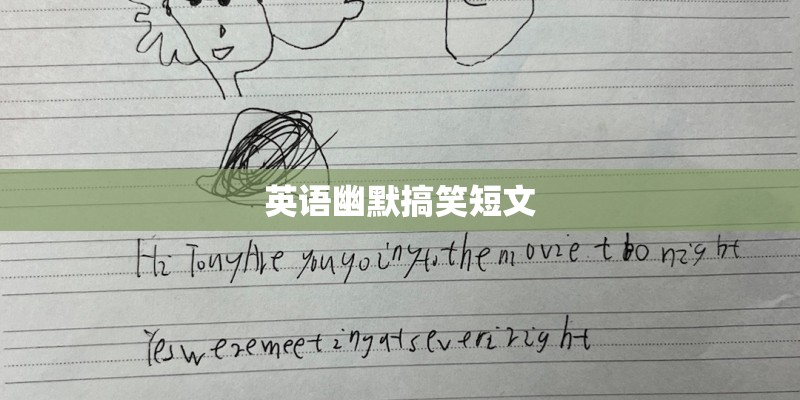 英语幽默搞笑短文
Hi TonyAre yougoingto the movie tonight
Yes weremeetingatsevenright